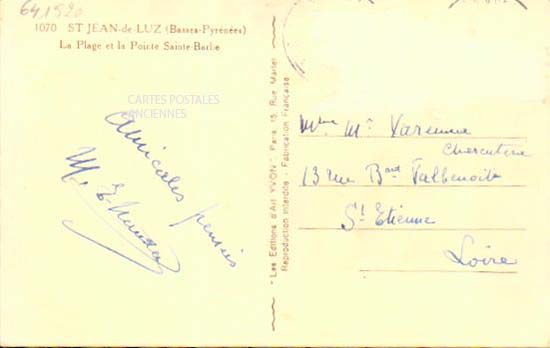 641920
1070 ST JEAN-de-LUZ (Basses-Pyrénées)
La Plage et la Pointe Sainte-Barbe
CARTES POSTALES
ANCIENNES
Amicales pensées
M. E.
"Les Editions d'Art YVON", Paris, 15, Rue Martel
Reproduction Interdite - Fabrication Française
Mme Mr Varenne
13 rue Bard
St Etienne
Loire